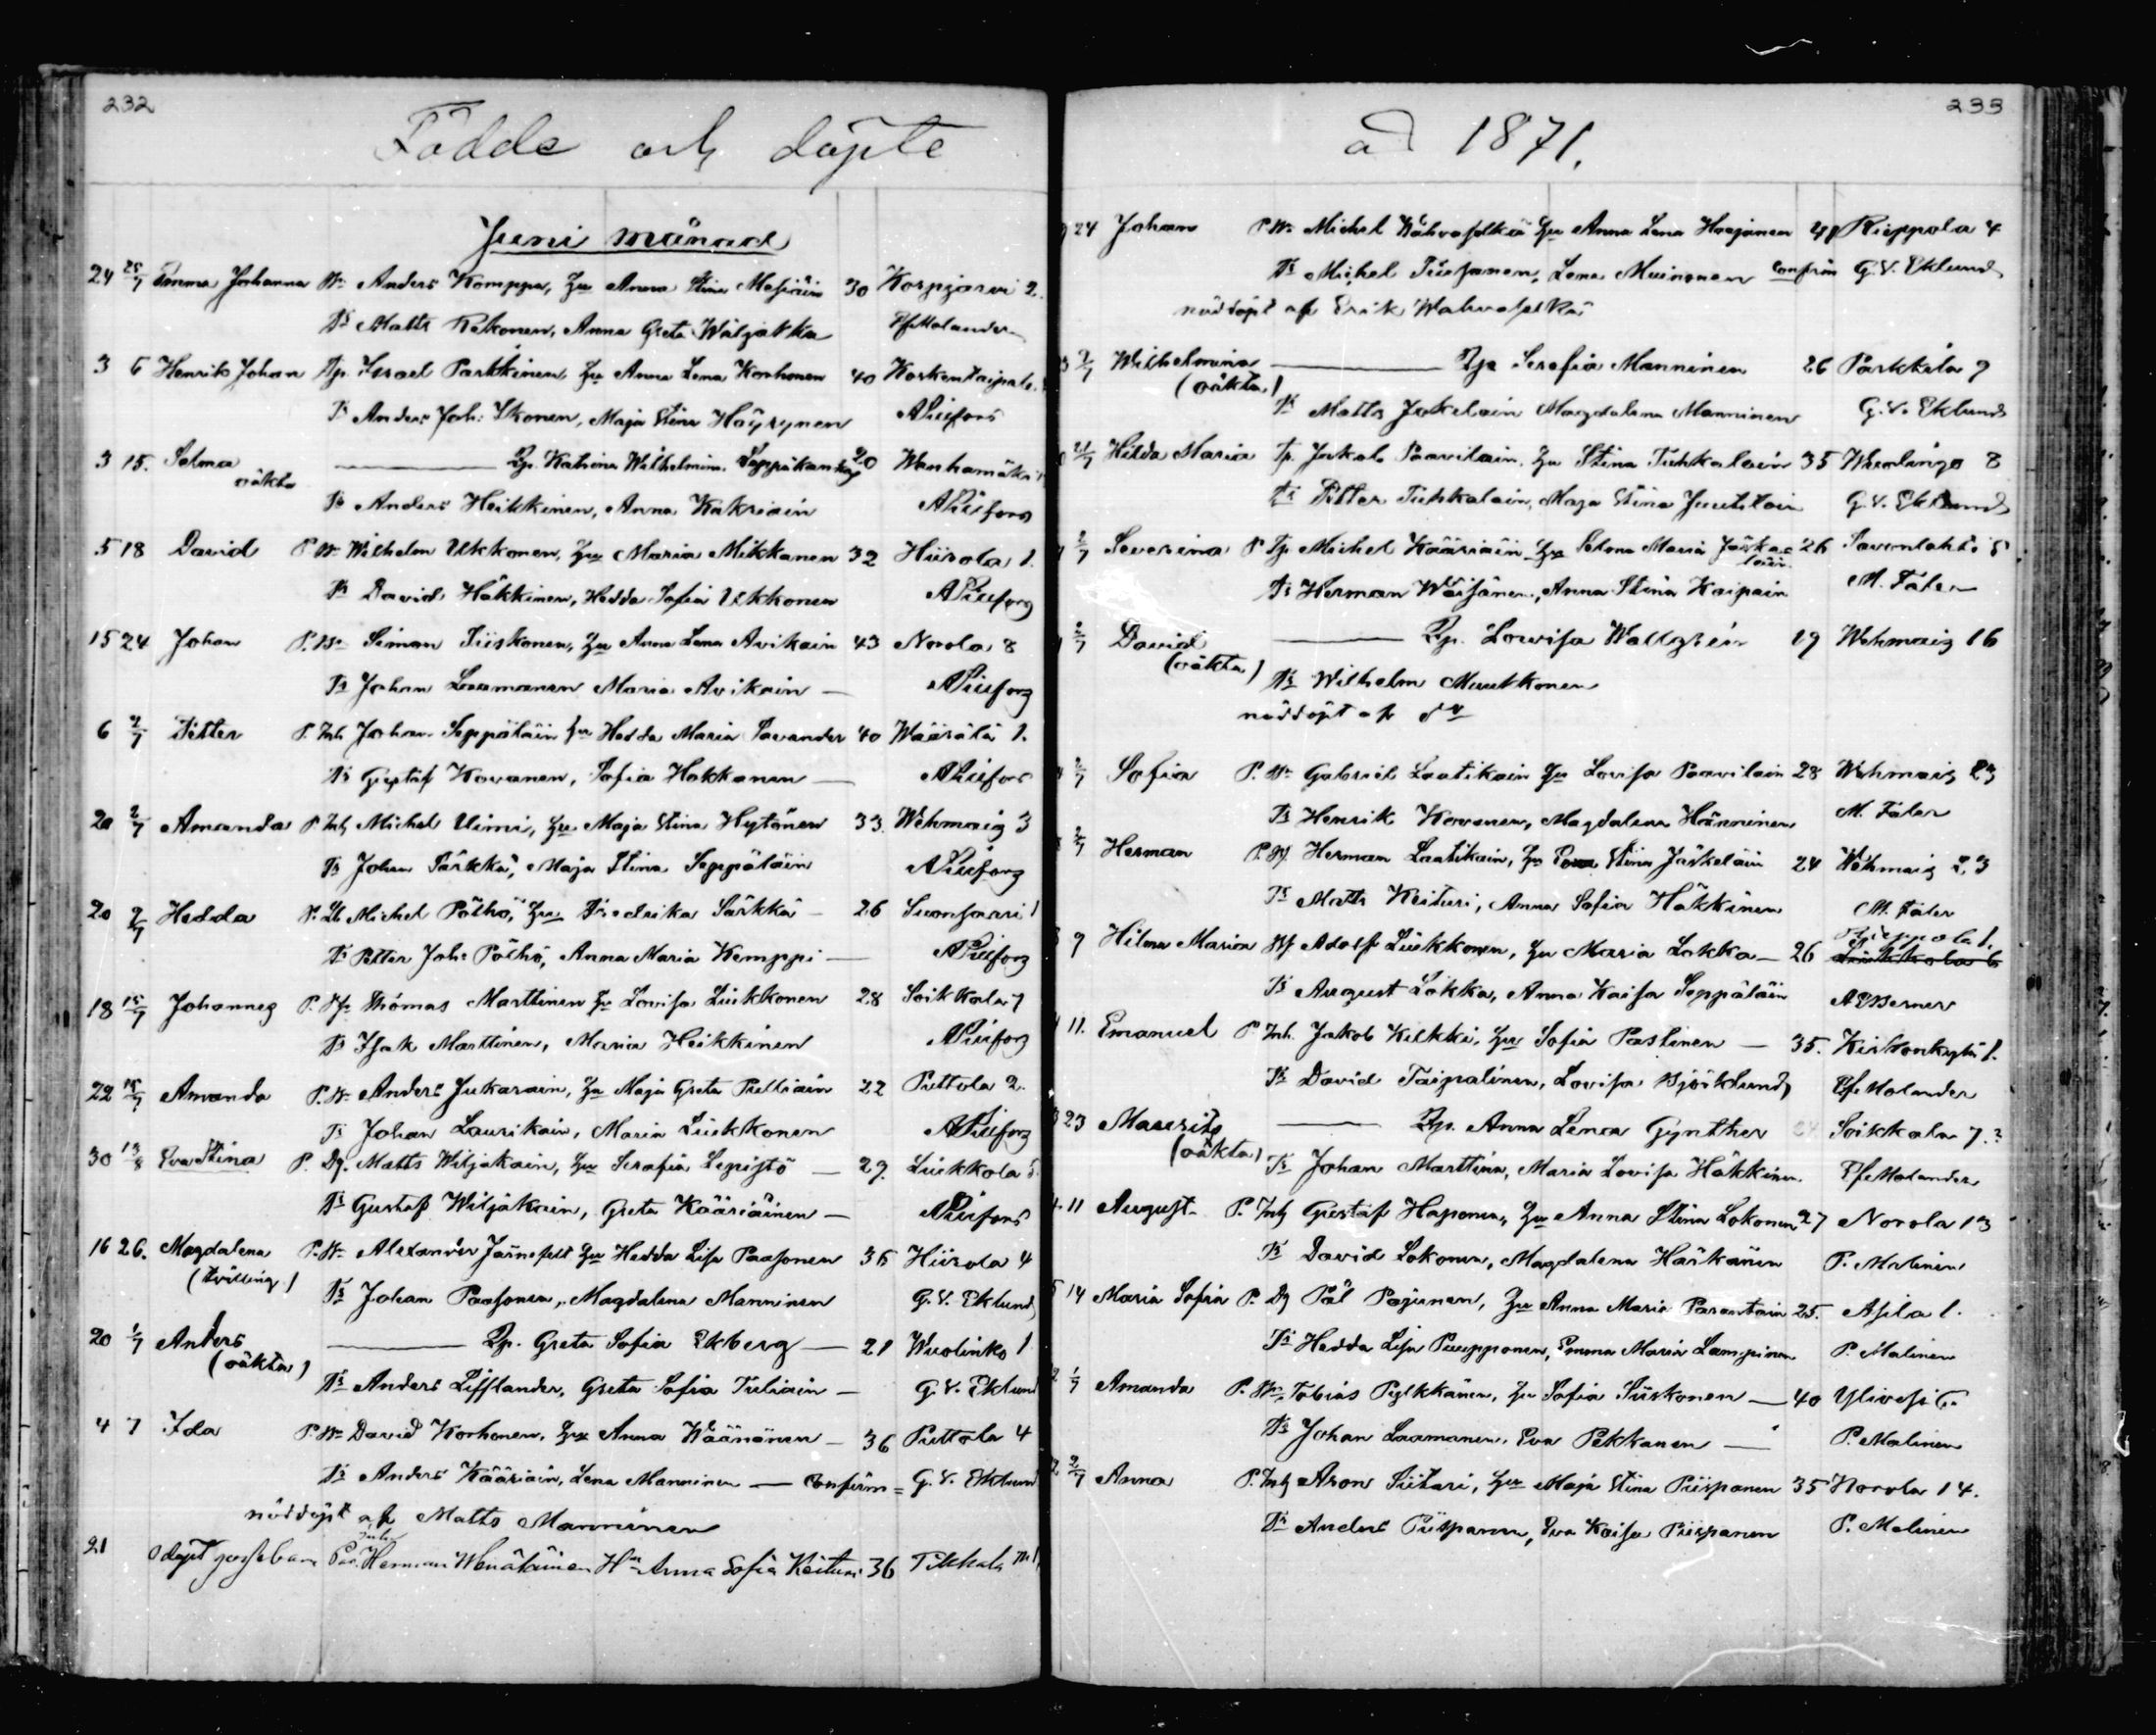 232
Födde och döpte
Juni månad
24 25/7 Emma Johanna Anders Komppa, Hu Anna Stina 30 Korpjärvi 2.
Ts Matts Rekonen, Anna Greta Wiljakka Molander
3 6 Henrik Johan Tp. Israel Parkkinen Hu Anna Lena Korhonen 40 Koskentaipale
Ts Anders Joh: Ikonen, Maja Stina Höyrynen
3 15. Selma Qp. Katrina Wilhelmina 20 Wanhamäki
oäkta
Ts Anders Heikkinen, Anna Kakriain
5 18 David P. Wilhelm Ukkonen, Hu Maria Mikkanen 32 Hiirola 1.
Ts David Häkkinen, Hedda Sofia Ukkonen
15 24 Johan P. Siman Tiiskonen, Hu Anna Lena Avikain 43 Norola 8
Ts Johan Laamanen Maria Avikain —
6 2/7 Petter P. Inh Johan Seppäläin Hu Hedda Maria Savander 40 Wäärälä 1.
Ts Gustaf Kovanen, Sofia Hokkanen —
20 2/7 Amanda P. Inh Michel Uimi, Hu Maja Stina Hytönen 33. Wehmais 3
Ts Johan Särkkä, Maja Stina Seppäläin
20 9/7 Hedda P. Lb Michel Pöthö, Hu Fredrika Särkkä — 26 Suonsaari 1
Ts Petter Joh: Pöthö, Anna Maria Kemppi —
18 15/7 Johannes P. Thomas Marttinen Hu Lovisa Liukkonen 28 Soikkala 7
Ts Isak Marttinen, Maria Heikkinen
22 15/7 Amanda P. Anders Jukarain, Hu Maja Greta Pulliain 22 Puttola 2.
Ts Johan Laurikain, Maria Liukkonen
30 13/8 Eva Stina P. Dg. Matts Wiljakain, Hu Serafia Lepistö — 29. Liukkola 5
Ts Gustaf Wiljakain, Greta Kääriäinen —
16 26. Magdalena P. Alexander Järnefelt Hu Hedda Lisa Paasonen 36 Hiirola 4
(tvilling)
Ts Johan Paasonen, Magdalena Manninen G. V. Eklund
20 1/7 Anders Qp. Greta Sofia Ekberg — 21 Wuolinko 1
(oäkta)
Ts Anders Lifflander, Greta Sofia Tuliain — G. V. Eklund
4 7 Ida P. David Korhonen, Hu Anna Väänänen — 36 Puttola 4
Ts Anders Kääriäin, Lena Manninen — Confirm = G. V. Eklund
nöddöpt af Matts Manninen
21 Odöpt gossebarn Herman Hn Anna Sofia Keituri 36 Tikkala
233
ad 1871.
24 Johan P. Michel Wahvaselkä Hu Anna Lena Haajanen Rieppola 4
Ts Michel Lena Muinonen confirm G. V. Eklund
nöddöpt af Erik Wahvaselkä
2/7 Wilhelmina Qp Serafia Manninen 26 Parkkila 9
(oäkta)
Ts Matts Jäkeläin Magdalena Manninen G. V. Eklund
Hilda Maria Tp. Jakob Paavilain, Hu Stina Tuhkalain 35 Wuolingo 8
Ts Petter Tuhkalain, Maja Stina Juutilain G. V. Eklund
2/7 Severina P Tp. Michel Kääriäin Hu Selma Maria Jäske= 26 Savonlahti 5
läin
Ts Herman Wäisänen, Anna Stina Kaipain M. Fäler
2/7 David Qp. Lowisa Wallgrén 19 Wehmais 16
(oäkta)
Ts Wilhelm Muukkonen
nöddöpt af do
2/7 Sofia P. Gabriel Laatikain Hu Lovisa Paavilain 28 Wehmais 23
Ts Henrik Kovanen, Magdalena Hänninen M. Fäler
2/7 Herman P. Herman Laatikain, Hu Stina Jäskeläin 24 Wehmais 23
Ts Matts Keituri, Anna Sofia Häkkinen M. Fäler
9 Hilma Maria Adolf Liukkonen, Hu Maria Lokka — 26
Ts August Lokka, Anna Kaisa Seppäläin
11. Emanuel P. Inh. Jakob Kilkki, Hu Sofia Pastinen — 35. Kirkonkylä 1.
Ts David Taipalinen, Lovisa Björklund Molander
23 Mauritz Qp. Anna Lena Gynther Soikkala 7.
(oäkta)
Ts Johan Marttinen, Maria Lovisa Häkkinen Molander
11 August P. Inh Gustaf Haponen, Hu Anna Stina Lokonen 27 Norola 13
Ts David Lokonen, Magdalena Härkänen P. Malinen
14 Maria Sofia P. Dg Pål Pajunen, Hu Anna Maria Parantain 25. Asila 1.
Ts Hedda Lisa Puupponen, Emma Maria Lampinen P. Malinen
1/7 Amanda P. Tobias Pylkkänen, Hu Sofia Siiskonen — 40 Ylivesi 6
Ts Johan Laamanen, Eva Pekkanen — P. Malinen
2/7 Anna P. Inh Aron Siitari, Hu Maja Stina Piispanen 35 Norola 14.
Ts Anders Piispanen, Eva Kaisa Piispanen P. Malinen